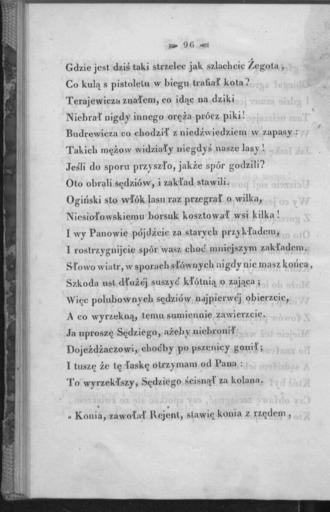 96
Gdzie jest dziś taki strzelec jak szlachcic Żegota,
Co kulą s pistoletu w biegu trafiał kota?
Terajewicza znałem, co idąc na dziki
Niebrał nigdy innego oręża prócz piki!
Budrewicza co chodził z niedźwiedziem w zapasy:
Takich mężow widziały niegdyś nasze lasy!
Jeśli do sporu przyszło, jakże spór godzili?
Oto obrali sędziów, i zakład stawili.
Ogiński sto włók lasu raz przegrał o wilka,
Niesiołowskiemu borsuk kosztował wsi kilka!
I wy Panowie pójdźcie za starych przykładem,
I rostrzygnijcie spór wasz choć mniejszym zakładem.
Słowo wiatr, w sporach słównych nigdy nie masz końca,
Szkoda ust dłużéj suszyć kłótnią o zająca;
Więc polubownych sędziów najpierwéj obierzcie,
A co wyrzekną, temu sumiennie zawierzcie.
Ja uproszę Sędziego, ażeby niebronił
Dojeżdżaczowi, choćby po pszenicy gonił;
I tuszę że tę łaskę otrzymam od Pana:
To wyrzekłszy, Sędziego ścisnął za kolana.
„Konia, zawołał Rejent, stawię konia z rzędem,